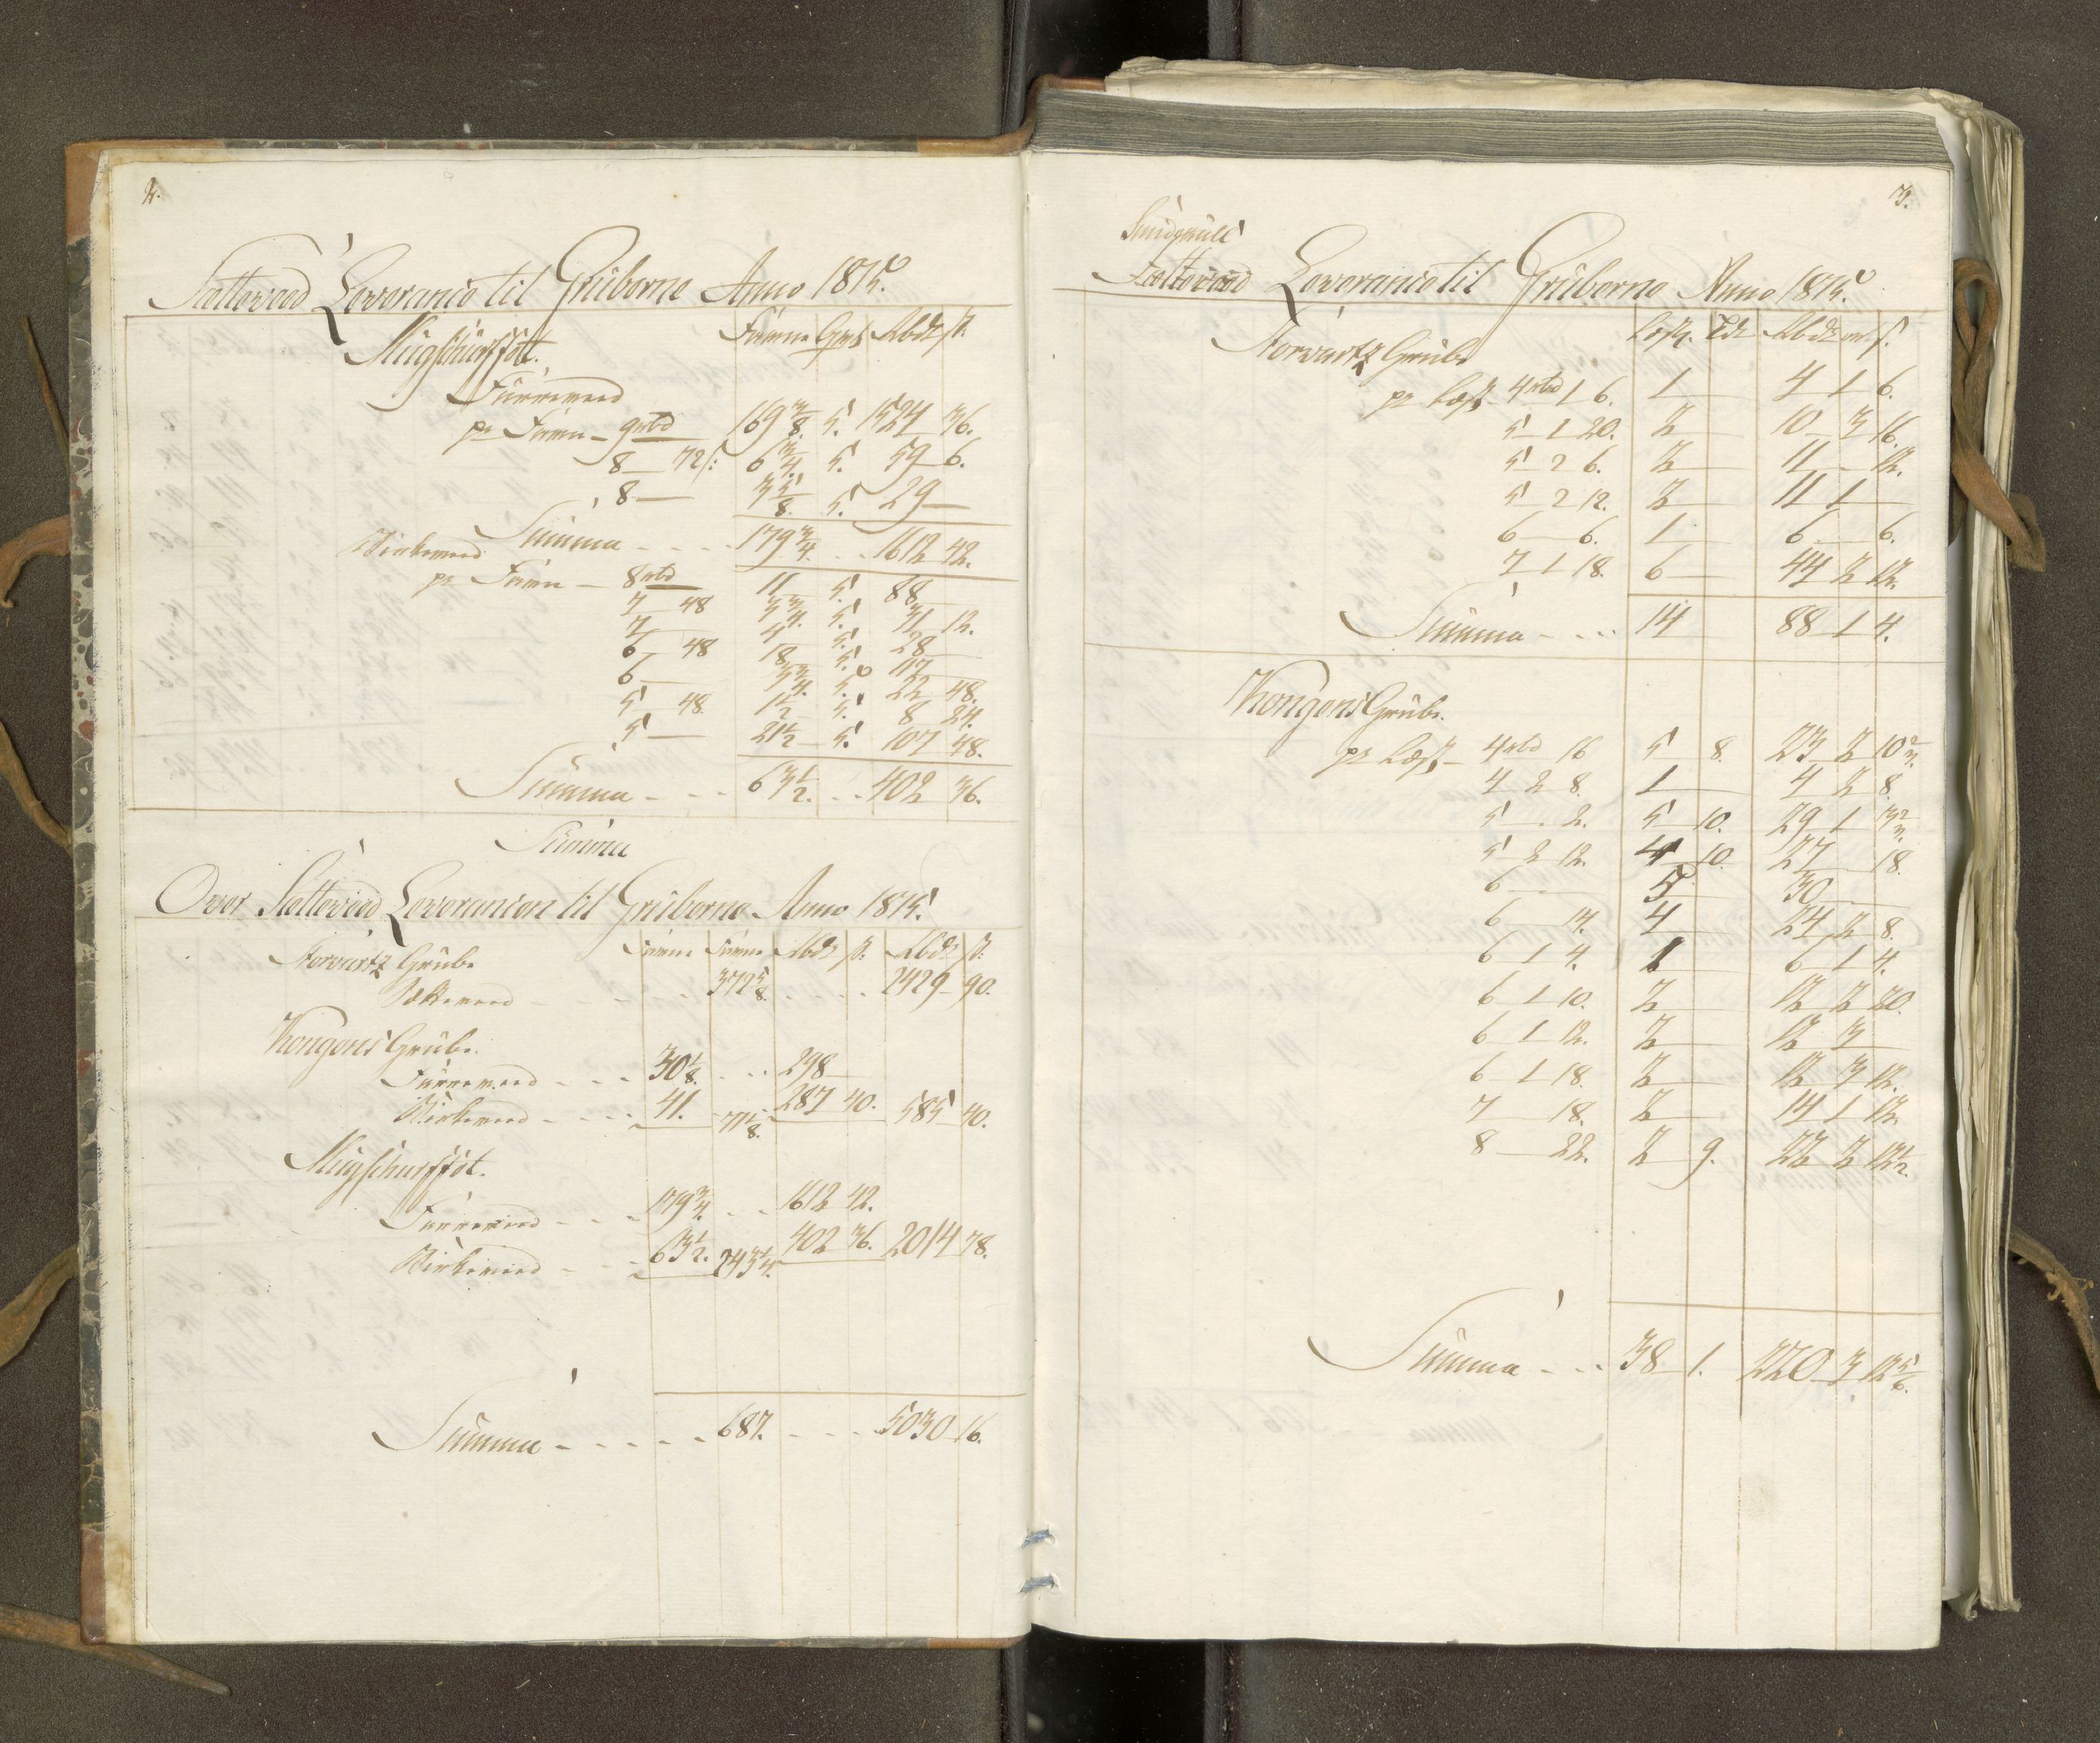 2.
Sætteveed Leverance til Gruberne Anno 1815.
Mugschurfföt.
Favne Qrt Rbdr s.
Furreveed
pr Favn - 9 rbd 169 3/8. 5. 1524 36.
8 — 72 s: 6 3/4. 5. 59 6.
8 — 3 5/8. 5. 29 —
Summa - - - 179 3/4. - - 1612 42.
Birkeveed
pr Favn — 8 rbd 11 5. 88 —
7 — 48 3 3/4. 5. 31 12.
7 — 4 5. 28 —
6 — 48 18 5. 117 —
6 — 3 3/4. 5. 22 48.
5 48. 1 1/2 5. 8 24.
5 — 21 1/2 5. 107 48.
Summa - - - 63 1/2. - - 402 36.
Summa
Over Sætteveed Leverancen til Gruberne Anno 1815.
Favne Favne Rbdr s. Rbdr s.
Norvartz Grube
372 5/8. - - - 2429 90.
Kongens Grube.
Furreveed - - - 30 1/8. - - 298 —
Birkeveed - - - 41. 71 1/8. 287 40. 585 40.
Mugschurfföt.
Furreveed - - - 179 3/4. - - 1612 42.
Birkeveed - - - 63 1/2. 243 1/4. 402 36. 2014 78.
Summa - - - - - 687. - - - 5030 16.
3.
Smidekull
Sætteveed Leverance til Gruberne Anno 1815.
Læst. Tdr Rbdr ort s.
Norvartz Grube
pr Læst - 4 rbd 1 6. 1 — 4 1 6.
5 1 20. 2 — 10 3 16.
5 2 6. 2 — 11 - 12.
5 2 12. 2 — 11 1 —
6 — 6. 1 — 6 — 6.
7 1 18. 6 — 44 2 12.
Summa - - - 14 88 1 4.
Kongens Grube.
pr Læst - 4 rbd 16 5 8. 23 2 10 2/3.
4 2 8. 1 — 4 2 8.
5 - 2. 5 10. 29 1 3 2/3.
5 2 12. 4 10. 27 — 18.
6 — 5 30 —
6 — 14. 4 — 24 2 8.
6 1 4. 1 — 6 1 4.
6 1 10. 2 — 12 2 20.
6 1 12. 2 — 12 3 —
6 1 18. 2 — 12 3 12.
7 — 18. 2 — 14 1 12.
8 — 22. 2 9. 22 2 12 1/2.
Summa - - - 38 1. 220 3 12 5/6.